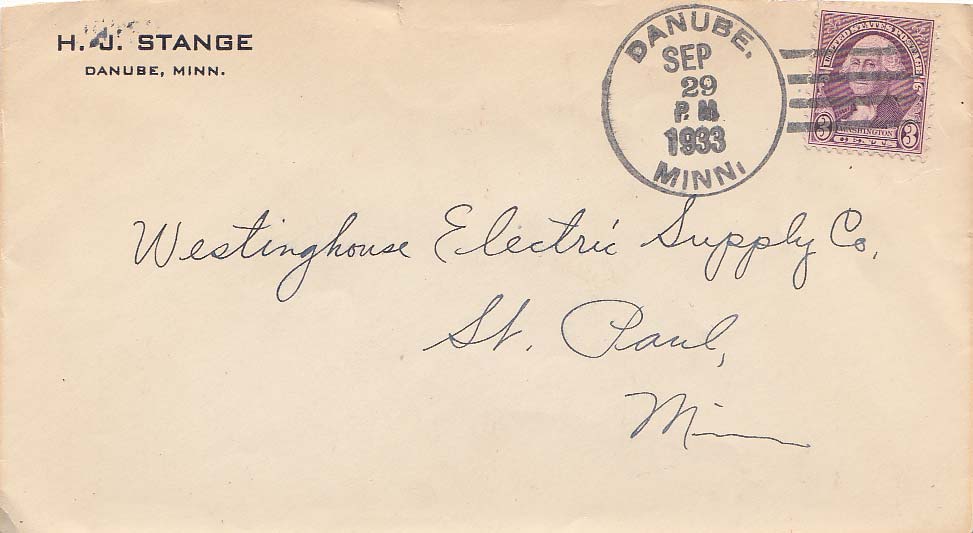 H. J. STANGE
DANUBE, MINN.
DANUBE,
SEP
29
P. M.
1933
MINN.
UNITED STATES POSTAGE
3 WASHINGTON 3
CENTS
Westinghouse Electric Supply Co,
St. Paul,
Minn